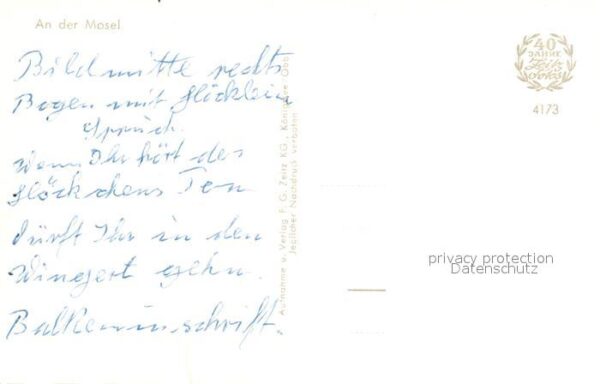 An der Mosel
Bildmitte rechts
Bogen mit Glöcklein
Spruch.
Wenn Ihr hört des
Glöckchens Ton
dürft Ihr in den
Wingert gehn.
Balkeninschrift.
Aufnahme u. Verlag F. G. Zeitz KG., Königssee/Obb.
Jeglicher Nachdruck verboten
40
JAHRE
Zeitz
4173
privacy protection
Datenschutz